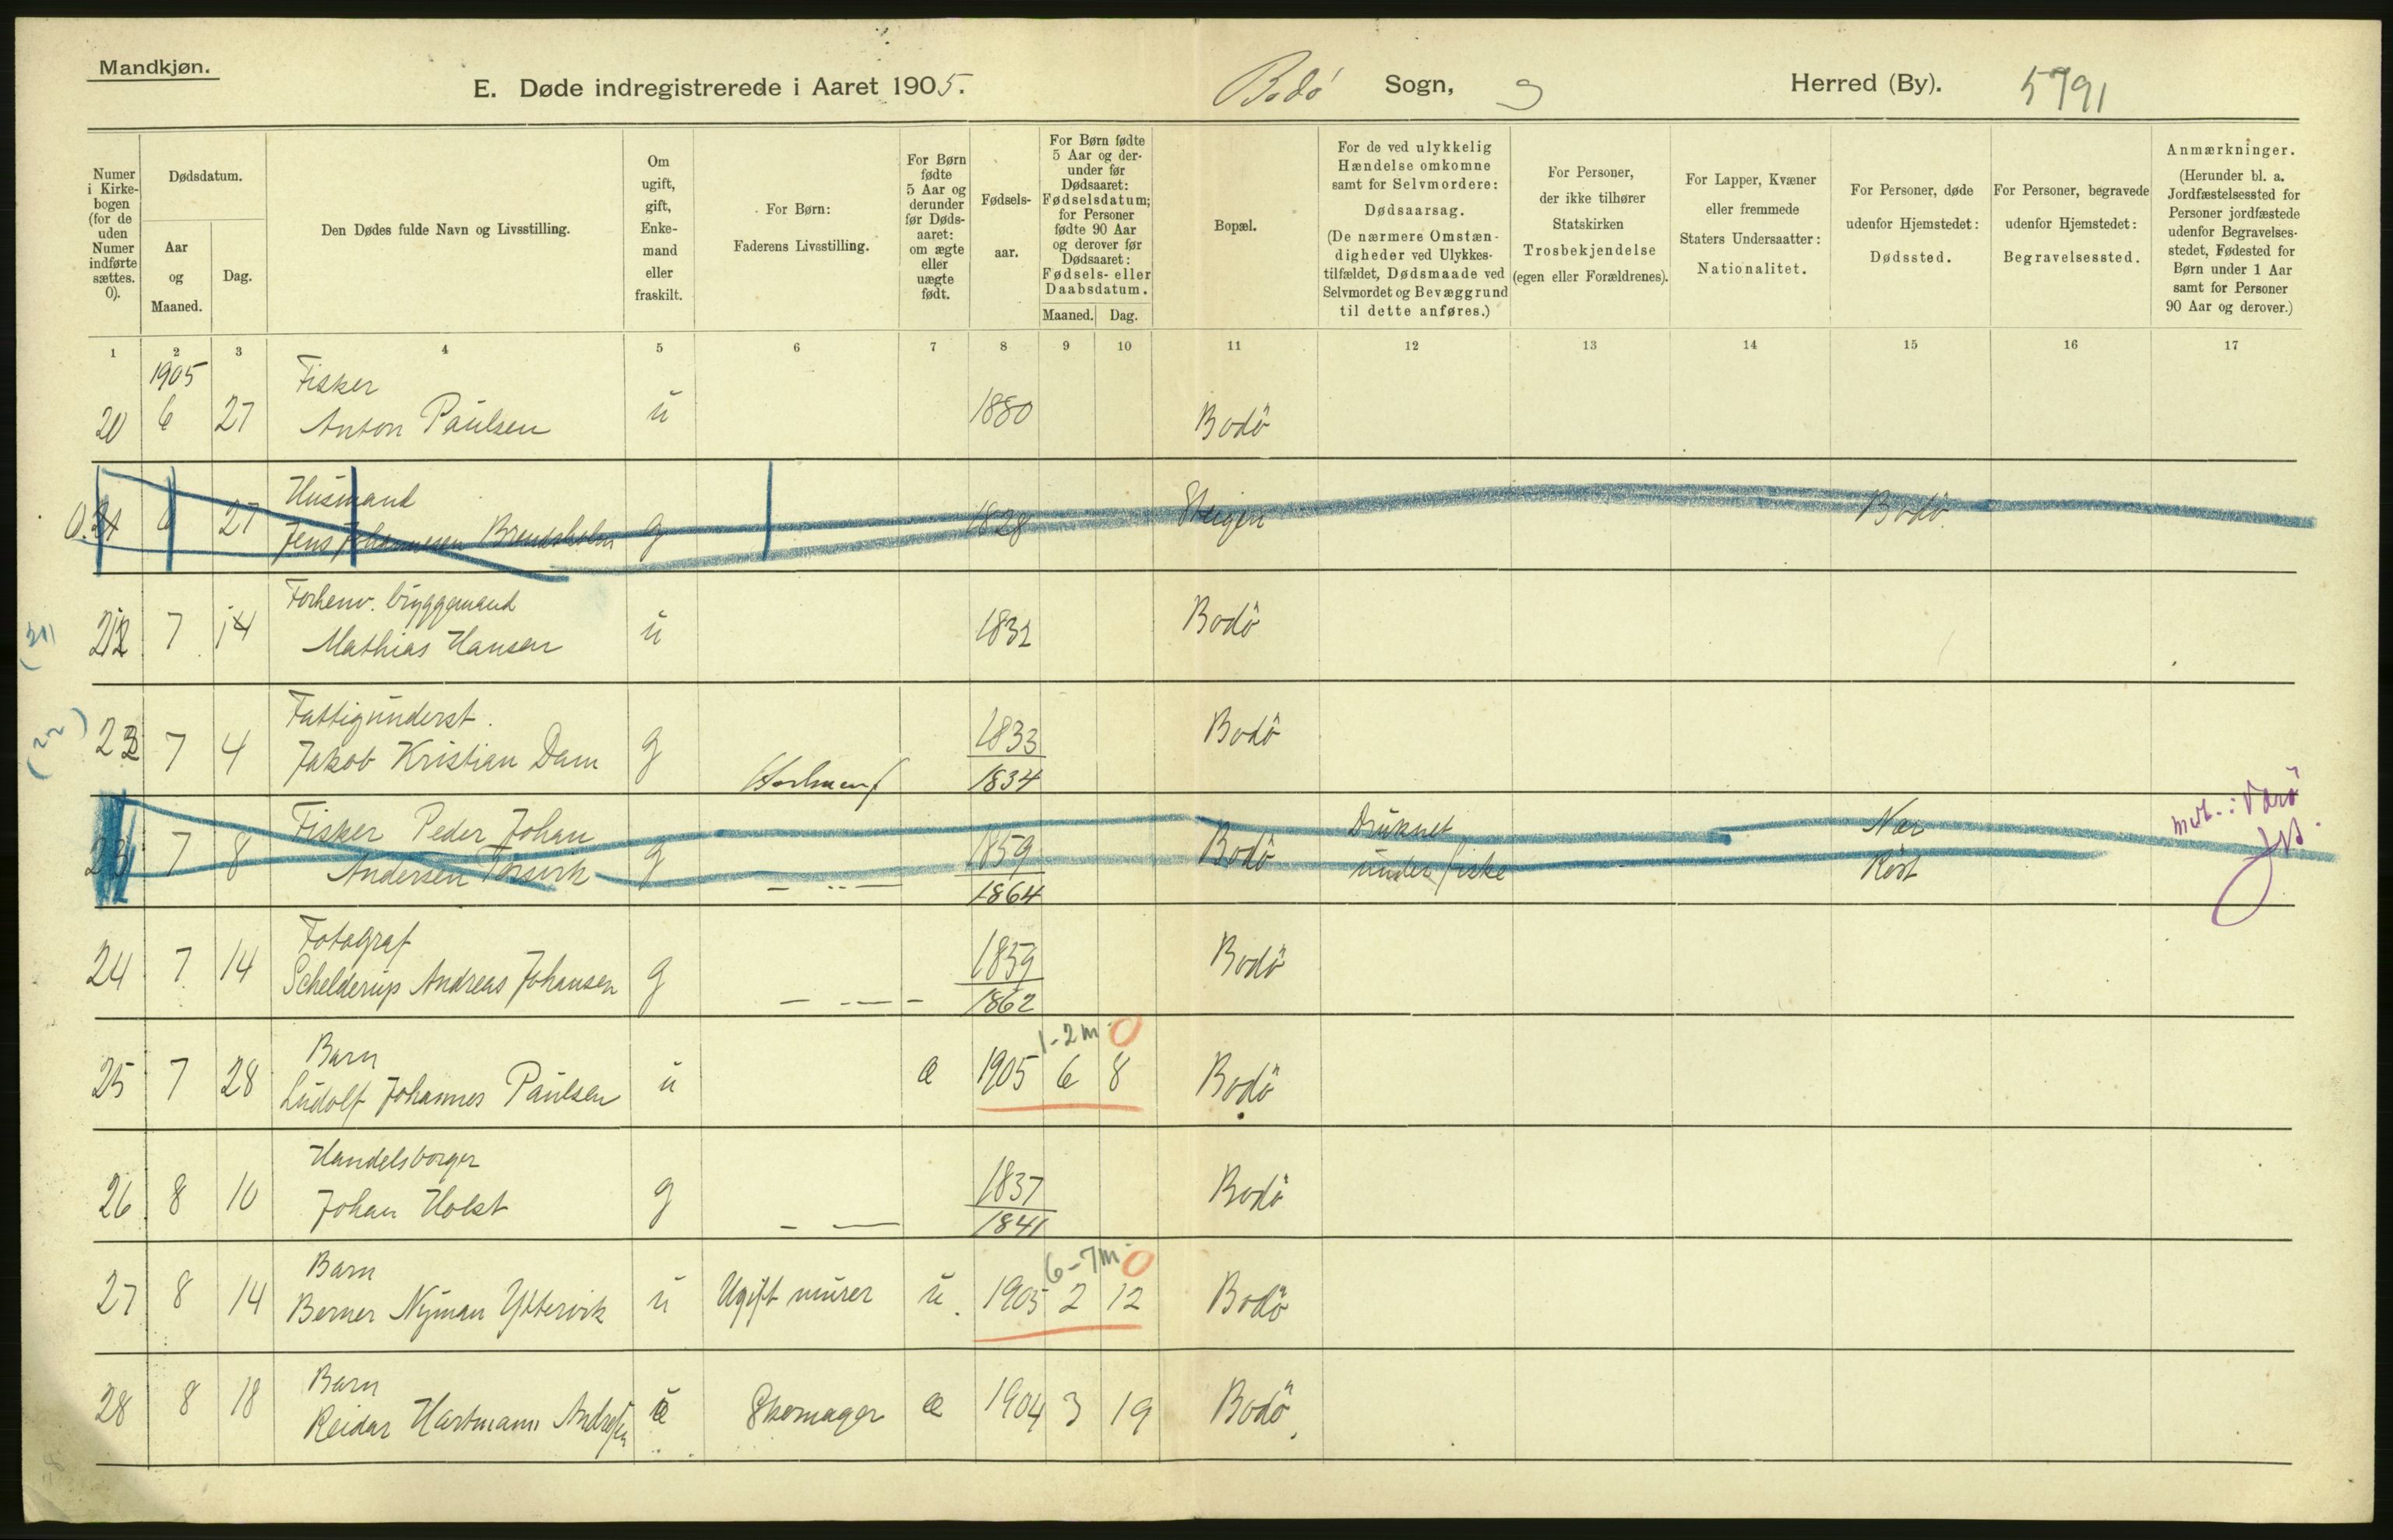 Mandkjøn.
E. Døde indregistrerede i Aaret 1905.
Bodö Sogn, Herred (By). 5791
Numer i Kirkebogen (for de uden Numer indførte sættes. 0).
Dødsdatum.
Aar og Maaned.
Dag.
Den Dødes fulde Navn og Livsstilling.
Om ugift, gift, Enkemand eller fraskilt.
For Børn: Faderens Livsstilling.
For Børn fødte 5 Aar og derunder før Dødsaaret: om ægte eller uægte født.
Fødselsaar.
For Børn fødte 5 Aar og derunder før Dødsaaret: Fødselsdatum; for Personer fødte 90 Aar og derover før Dødsaaret: Fødsels- eller Daabsdatum.
Maaned. Dag.
Bopæl.
For de ved ulykkelig Hændelse omkomne samt for Selvmordere: Dødsaarsag. (De nærmere Omstændigheder ved Ulykkestilfældet, Dødsmaade ved Selvmordet og Bevæggrund til dette anføres.)
For Personer, der ikke tilhører Statskirken Trosbekjendelse (egen eller Forældrenes).
For Lapper, Kvæner eller fremmede Staters Undersaatter: Nationalitet.
For Personer, døde udenfor Hjemstedet: Dødssted.
For Personer, begravede udenfor Hjemstedet: Begravelsessted.
Anmærkninger. (Herunder bl. a. Jordfæstelsessted for Personer jordfæstede udenfor Begravelsesstedet, Fødested for Børn under 1 Aar samt for Personer 90 Aar og derover.)
1 2 3 4 5 6 7 8 9 10 11 12 13 14 15 16 17
1905
Fisker
20 6 27 Anton Paulsen u 1880 Bodö
Husmand
0. 21 6 27 Jens Johannesen g 1828 Steigen Bodö
Forhenv. bryggemand
(21) 7 14 Mathias Hansen u 1832 Bodö
Fattigunderst.
(22) 23 7 4 Jakob Kristian Dam g 1833 Bodö
1834
Fisker Peder Johan Druknet Nær
23 7 8 Andersen Torsvik g 1859 Bodö under fiske Röst
1864
Fotograf
24 7 14 Schelderup Andreas Johansen g 1859 Bodö
1862
1-2 m 0
Barn
25 7 28 Ludolf Johannes Paulsen u æ 1905 6 8 Bodö
Handelsborger
26 8 10 Johan Holst g 1837 Bodö
1841
6-7 m 0
Barn
27 8 14 Berner Nyman Yttervik u Ugift murer u. 1905 2 12 Bodö
Barn
28 8 18 Reidar Hartmann Andresen u Skomager æ 1904 3 19 Bodö